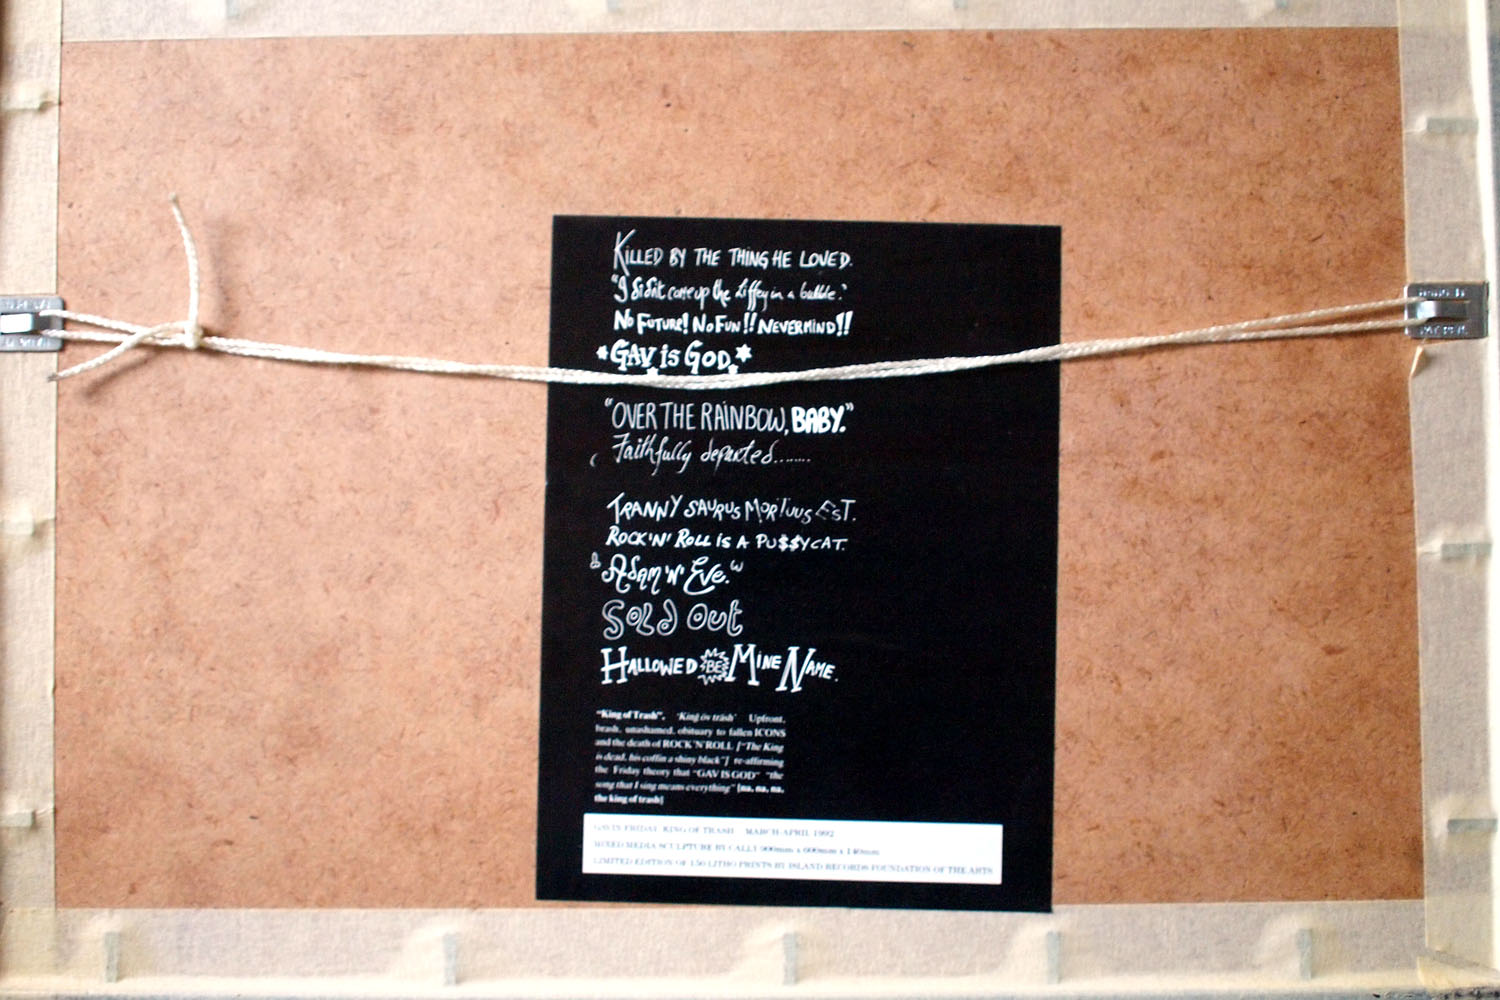 KILLED BY THE THING HE LOVED.
"I didn't come up the Liffey in a bubble."
NO FUTURE! NO FUN!! NEVERMIND!!
*GAV IS GOD*
"OVER THE RAINBOW, BABY."
Faithfully departed.......
TRANNY SAURUS MORTUUS EST.
ROCK 'N' ROLL IS A PU$$YCAT.
Adam 'N' Eve.
SOLD OUT
HALLOWED BE MINE NAME.
"King of Trash", 'King öv träsh' Upfront,
brash, unashamed, obituary to fallen ICONS
and the death of ROCK'N'ROLL ["The King
is dead, his coffin a shiny black"] re-affirming
the Friday theory that "GAV IS GOD" "the
song that I sing means everything" [na, na, na,
the king of trash]
GAVIN FRIDAY. KING OF TRASH MARCH-APRIL 1992
MIXED MEDIA SCULPTURE BY CALLY 900mm x 600mm x 140mm
LIMITED EDITION OF 150 LITHO PRINTS BY ISLAND RECORDS FOUNDATION OF THE ARTS